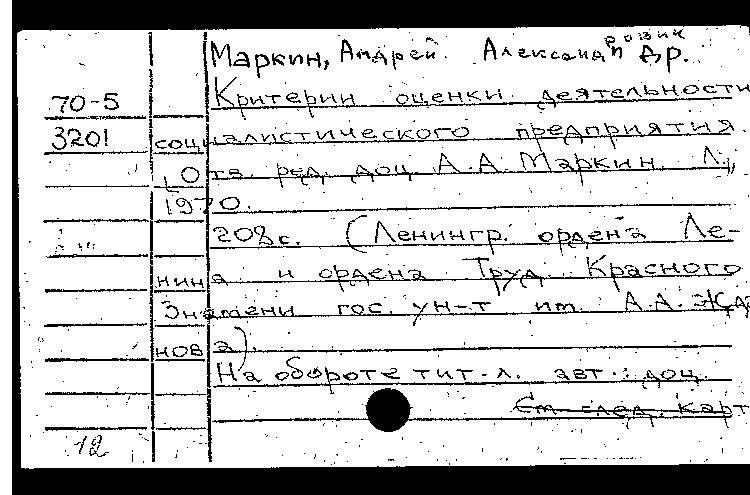 Маркин, Андрей Александрович и др.
70-5 Критерии оценки деятельности
3201 социалистического предприятия.
[Отв. ред. доц. А.А. Маркин. Л.,
1970.
208 с. (Ленингр. ордена Ле-
нина и ордена Труд. Красного
Знамени гос. ун-т им. А.А. Жда
нова).
На обороте тит. л. авт.: доц.
См. след. карт
12